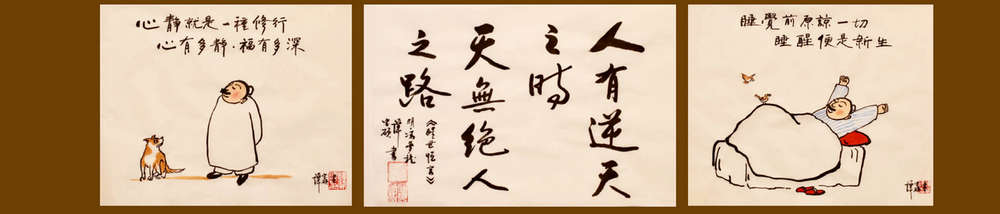 心靜就是一種修行
心有多靜，福有多深
人有逆天
之時
天無絕人
之路
《醒世恆言》
明馮夢龍
譚 書
睡覺前原諒一切
睡醒便是新生
譚